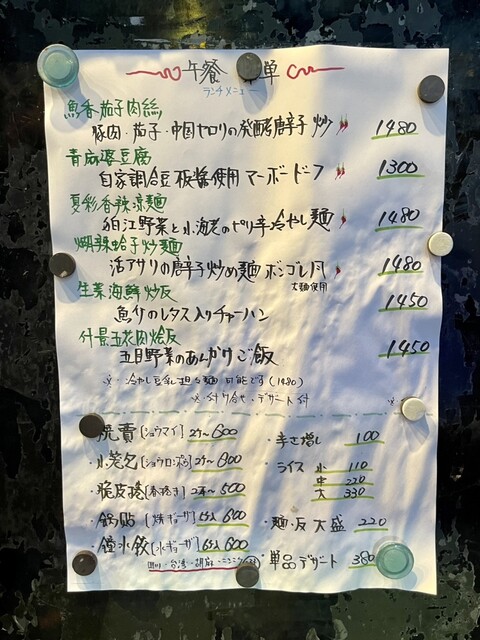 午餐 単
ランチメニュー
魚香茄子肉絲
豚肉・茄子・中国セロリの発酵唐辛子炒 1480
青麻婆豆腐
自家調合豆板醤使用 マーボードーフ 1300
夏彩香辣涼麺
狛江野菜と小海老のピリ辛冷やし麺 1480
蛤子炒麺
活アサリの唐辛子炒め麺 ボンゴレ风 1480
太麺使用
生菜海鮮炒反 1450
魚介のレタス入りチャーハン
什景五花肉烩飯 1450
五目野菜のあんかけご飯
※ 冷やし豆乳担々麺 可能です (1480)
※ 付け合せ・デザート付
焼賣 [ショウマイ] 2ケ〜 600
小笼包 [ショウロンポウ] 2ケ〜 600
・脆皮捲 [春捲き] 2本〜 500
・鍋貼 [焼ギョーザ] 600
・鐘水餃 [水ギョーザ] 600
・辛さ増し 100
・ライス 小 110
中 220
大 330
・麺・反 大盛 220
・単品デザート 380